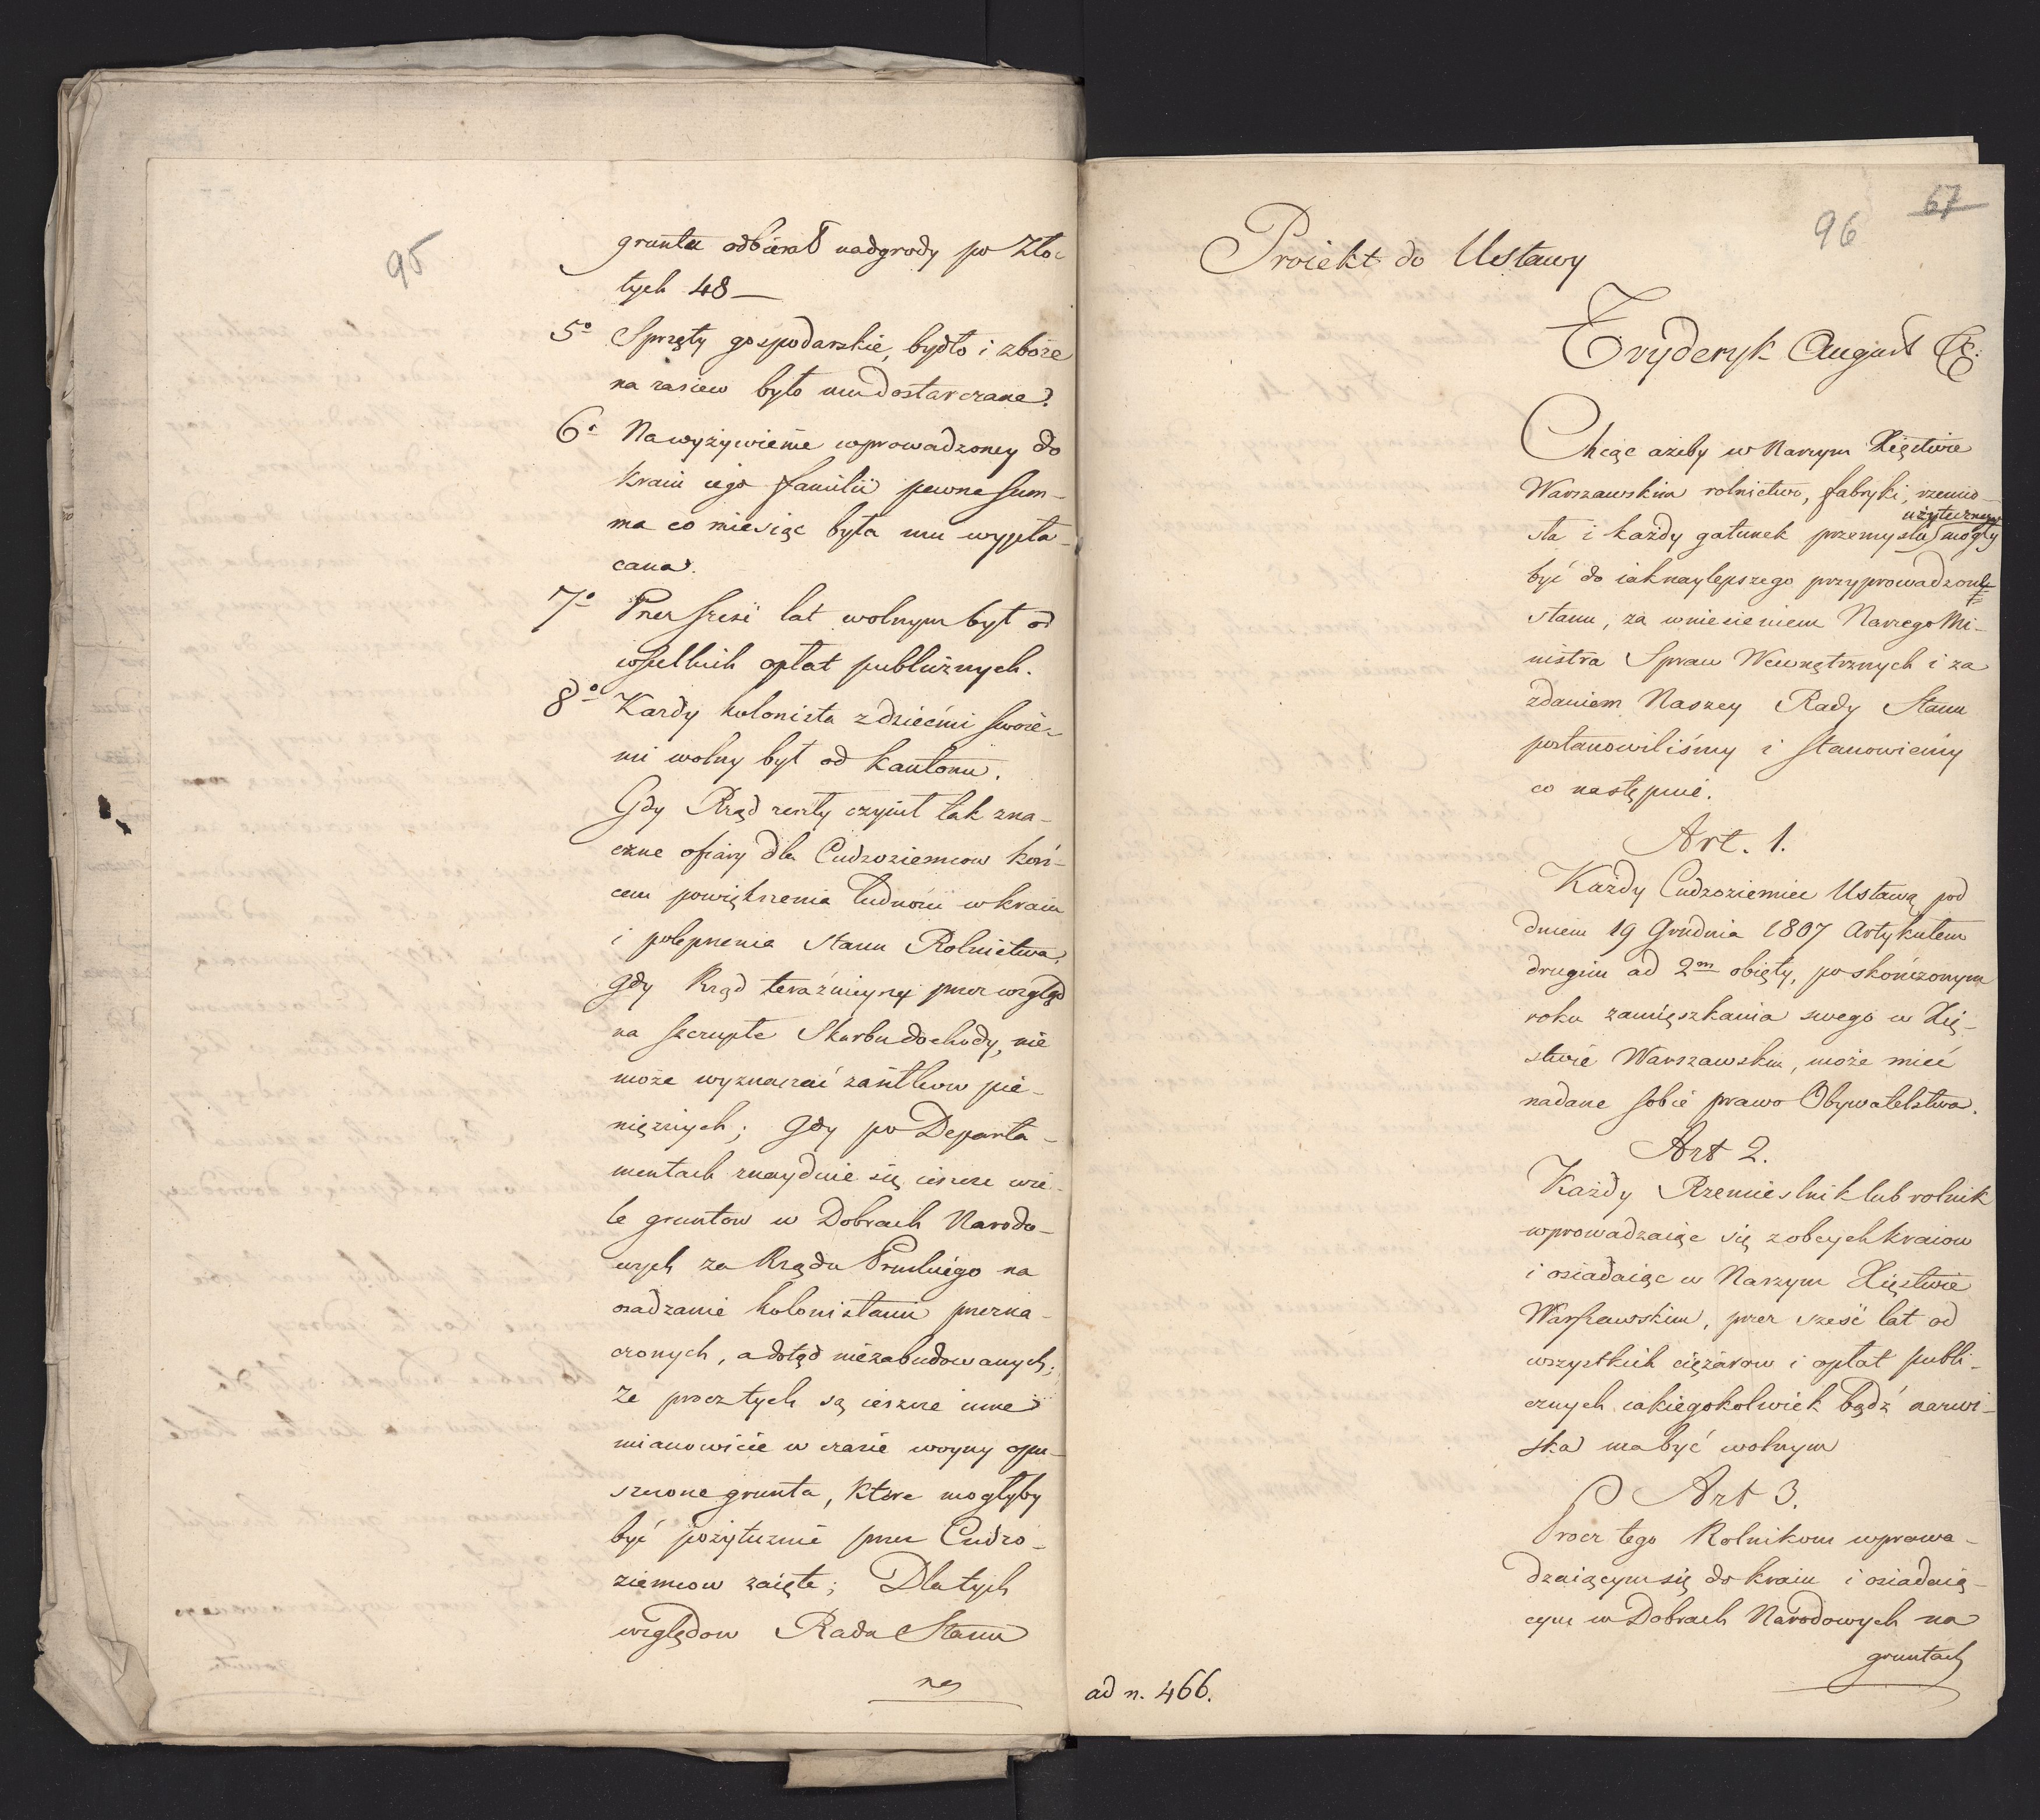 95
gruntu odbierał nadgrody po Zło-
tych 48 —
5o Sprzęty gospodarskie, bydło i zboże
na zasiew było mu dostarczane.
6o Na wyżywienie wprowadzoney do
kraiu iego familii pewna sum-
ma co miesiąc była mu wypła-
cana.
7o Przez sześć lat wolnym był od
wszelkich opłat publicznych.
8o Każdy kolonista z dziećmi swoie-
mi wolny był od kantonu.
Gdy Rząd zeszły czynił tak zna-
czne ofiary dla Cudzoziemcow koń-
cem powiększenia ludności w kraiu
i polepszenia stanu Rolnictwa,
gdy Rząd teraźnieyszy przez wzgląd
na szczupłe Skarbu dochody, nie
może wyznaczać zasiłkow pie-
niężnych; Gdy po Departa-
mentach znayduie się ieszcze wie-
le gruntow w Dobrach Narodo-
wych za Rządu Pruskiego na
osadzanie kolonistami przezna-
czonych, a dotąd niezabudowanych;
że procz tych są ieszcze inne
mianowicie w czasie woyny opu-
szczone grunta, które mogłyby
być pożytecznie przez Cudzo-
ziemcow zaięte; Dla tych
względow Rada Stanu
na
67
96
Proiekt do Ustawy
Fryderyk August &c:
Chcąc ażeby w Naszym Xięstwie
Warszawskim rolnictwo, fabryki, rzemio-
użytecznego
sła i każdy gatunek przemysłu mogły
być do iaknaylepszego przyprowadzone
stanu, za wniesieniem Naszego Mi-
nistra Spraw Wewnętrznych i za
zdaniem Naszey Rady Stanu
postanowiliśmy i stanowiemy
co następuie.
Art. 1.
Każdy Cudzoziemiec Ustawą pod
dniem 19 Grudnia 1807 Artykułem
drugim ad 2m obięty, po skończonym
roku zamięszkania swego w Xię-
stwie Warszawskim, może mieć
nadane sobie prawo Obywatelstwa.
Art 2.
Każdy Rzemieslnik lub rolnik
wprowadzaiąc się z obcych kraiow
i osiadaiąc w Naszym Xięstwie
Warszawskim, przez sześć lat od
wszystkich ciężarow i opłat publi-
cznych iakiegokolwiek bądź nazwi-
ska ma być wolnym
Art 3.
Procz tego Rolnikom wprowa-
dzaiącym się do kraiu i osiadaią-
cym w Dobrach Narodowych na
gruntach
ad n. 466.